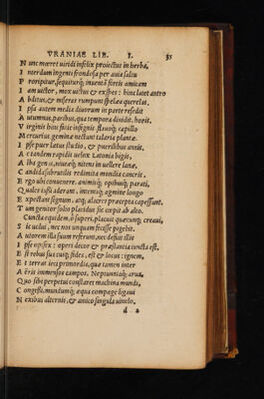 VRANIAE LIB. I. 35
N unc mœret uiridi infelix proiectus in herba,
I nterdum ingenti frondosa per auia saltu
P roripitur, sequiturq; inuentá fortis amicam
I am uictor, mox uictus & expes: hinc latet antro
A bditus, & miseras rumpunt spelæa querelas,
I psa autem media diuorum in parte residit
A utumnus, paribus, qui tempora diuidit, horis.
V irginis huic fini insignis flauiq; capillo
M ercurius, gemina nectunt talaria plantæ.
I pse puer latus studio, & puerilibus annis,
A c tandem rapidi uelox Latonia bigis,
A lba genis, niueúq; nitens in uertice cornu,
C andida subrutilis redimita monilia concris,
E rgo ubi conuenere, animisq; opibusq; parati,
Q uales iussi aderant, intentiq; agmine longo
E xpectant signum, atq; alacres præcepta capessunt.
T um genitor solio placidus sic cœpit ab alto.
C uncta equidem, ô superi, placuit quæcunq; creaui,
S ic uelut, nec nos unquam fecisse pigebit.
A utorem illa suum referunt, nec desuit illis
I pse opifex: operi decor & præstantia cuncta est,
E st rebus sus cuiq; sides, est & locus: ignem,
E t terras ieci primordia, quæ tamen inter
A ëris immensos campos, Neptuniáq; arua,
Q uo sibi perpetui constaret machina mundi,
C ongessi, mundumq; æqua compage ligaui
N exibus alternis, & amico singula uinclo,